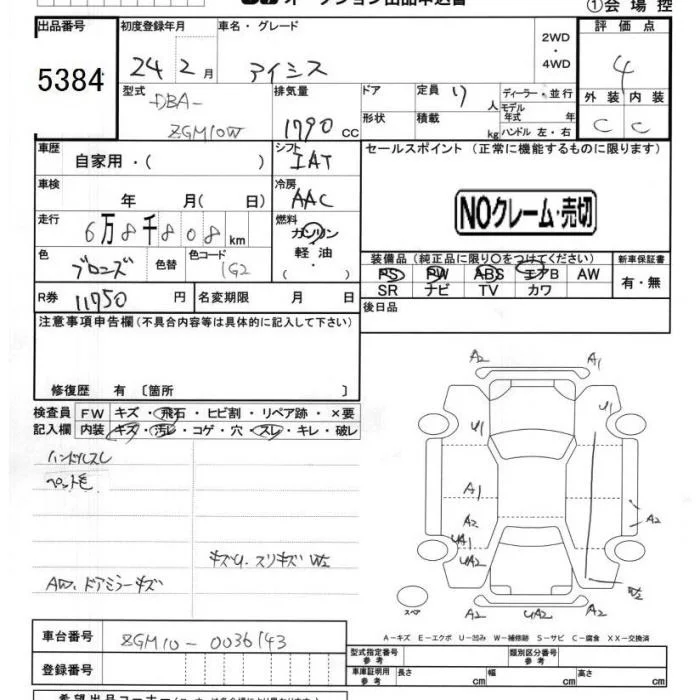 ①会場控
出品番号 初度登録年月 車名・グレード 2WD ・ 4WD 評価点
5384 24年 2月 アイシス 4
型式 DBA- ZGM10W 排気量 1790 cc ドア 定員 7人 ディーラー・並行
形状 積載 kg モデル年式 年式 ハンドル 左・右
外装 内装
C C
車歴 自家用・( ) シフト IAT セールスポイント (正常に機能するものに限ります)
車検 年 月( 日) 冷房 AAC
NOクレーム・売切
走行 6万8千808km 燃料 ガソリン 軽油 ・( )
色 ブロンズ 色替 色コード 1G2
装備品(純正品に限り○をつけてください) 新車保証書
PS PW ABS エアB AW 有・無
SR ナビ TV カワ
R券 11750円 名変期限 月 日 後日品
注意事項申告欄(不具合内容等は具体的に記入して下さい)
修復歴 有〔箇所 〕
検査員 FW キズ・飛石・ヒビ割・リペア跡・×要
記入欄 内装 キズ・汚レ・コゲ・穴・スレ・キレ・破レ
ハンドルスレ
ペット毛
キズU.スリキズ W2
AW.ドアミラーキズ
A2 A1
U1 U1
A1
A2 A2
UA1
UA2 W2
A2 UA2 A2
スペア
A-キズ E-エクボ U-凹み W-補修跡 S-サビ C-腐食 XX-交換済
車台番号 ZGM10-0036143
型式指定番号 参考 類別区分番号 参考
登録番号 車庫証明用 参考 長さ cm 幅 cm 高さ cm